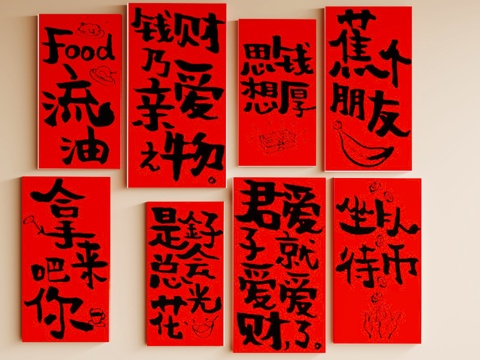 Food
流
油
钱财
乃
亲爱
之物。
思钱
想厚
蕉个
朋友
拿
来吧
你
是金子
总会
花光
君子爱财,
爱就爱了。
坐以
待币